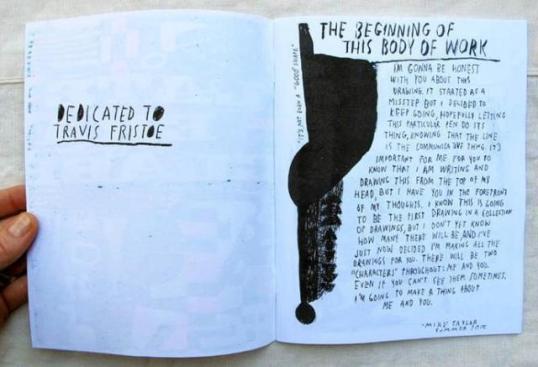 DEDICATED TO
TRAVIS FRISTOE
THE BEGINNING OF
THIS BODY OF WORK
"IT'S NOT EVEN A "GOOD SHAPE"
I'M GONNA BE HONEST
WITH YOU ABOUT THIS
DRAWING. IT STARTED AS A
MISSTEP BUT I DECIDED TO
KEEP GOING, HOPEFULLY LETTING
THIS PARTICULAR PEN DO ITS
THING, KNOWING THAT THE LINE
IS THE COMMUNICATIVE THING. IT'S
IMPORTANT FOR ME FOR YOU TO
KNOW THAT I AM WRITING AND
DRAWING THIS FROM THE TOP OF MY
HEAD, BUT I HAVE YOU IN THE FOREFRONT
OF MY THOUGHTS. I KNOW THIS IS GOING
TO BE THE FIRST DRAWING IN A COLLECTION
OF DRAWINGS, BUT I DON'T YET KNOW
HOW MANY THERE WILL BE, AND I'VE
JUST NOW DECIDED I'M MAKING ALL THE
DRAWINGS FOR YOU. THERE WILL BE TWO
"CHARACTERS" THROUGHOUT: ME AND YOU.
EVEN IF YOU CAN'T SEE THEM SOMETIMES,
I'M GOING TO MAKE A THING ABOUT
ME AND YOU.
-MIKE TAYLOR
SUMMER